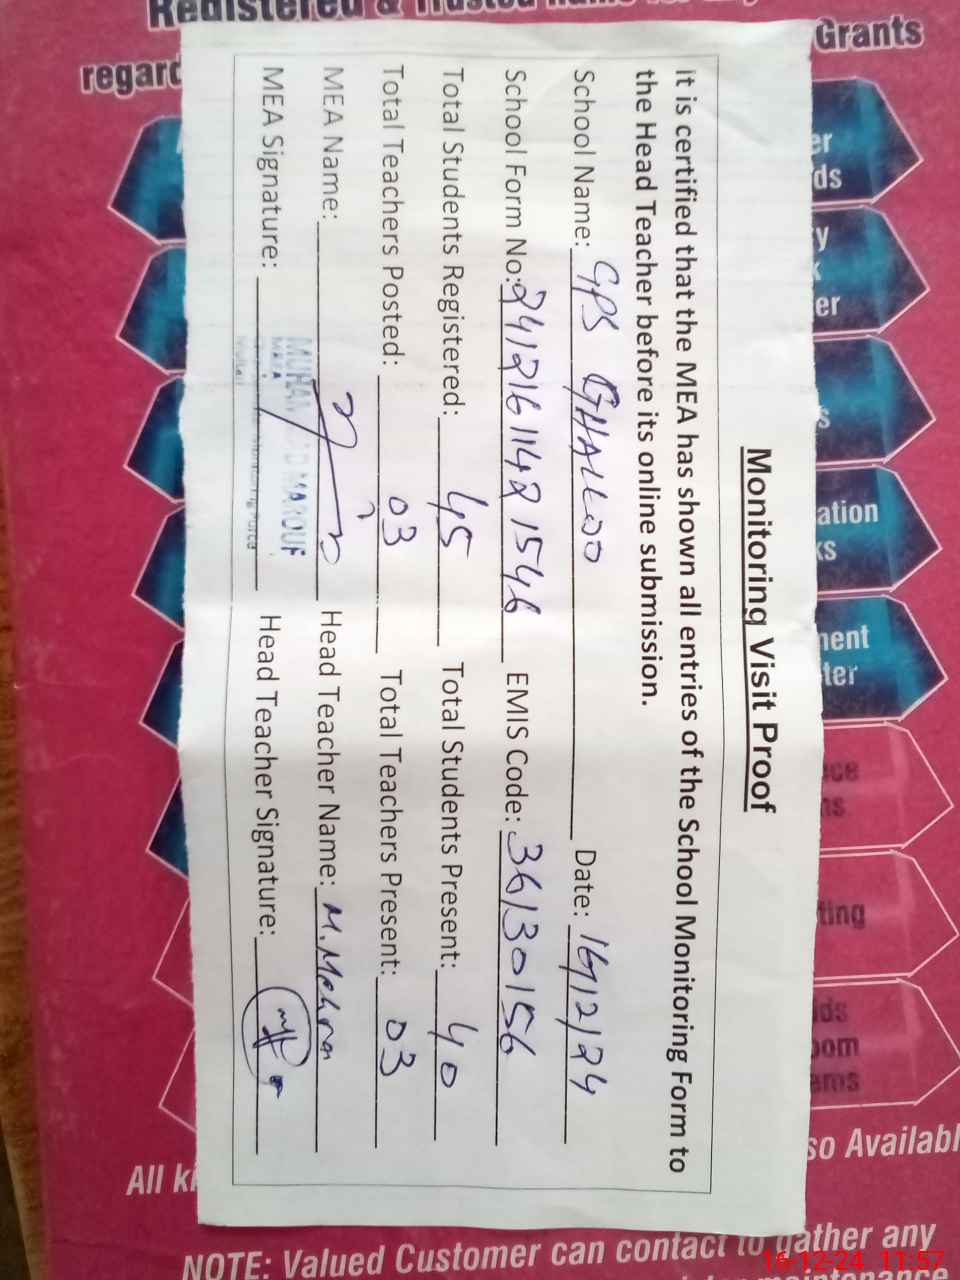 Registered & Trusted name for any
Grants
regard
Monitoring Visit Proof
It is certified that the MEA has shown all entries of the School Monitoring Form to
the Head Teacher before its online submission.
School Name: GPS GHALLOO Date: 16/12/24
School Form No: 2412161142 1546 EMIS Code: 36130156
Total Students Registered: 45 Total Students Present: 40
Total Teachers Posted: 03 Total Teachers Present: 03
MEA Name: Head Teacher Name: M. Mehran
MUHAMMAD MAROUF
MEA
MEA Signature: Head Teacher Signature:
er
ds
y
er
s
ation
ks
ment
ter
ce
ns
ting
ids
oom
ems
so Availabl
All ki
NOTE: Valued Customer can contact to gather any
maintenance
16-12-24 11:57